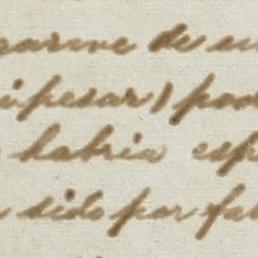 garme de en
i pesar) pod
habria esp
sido por fal